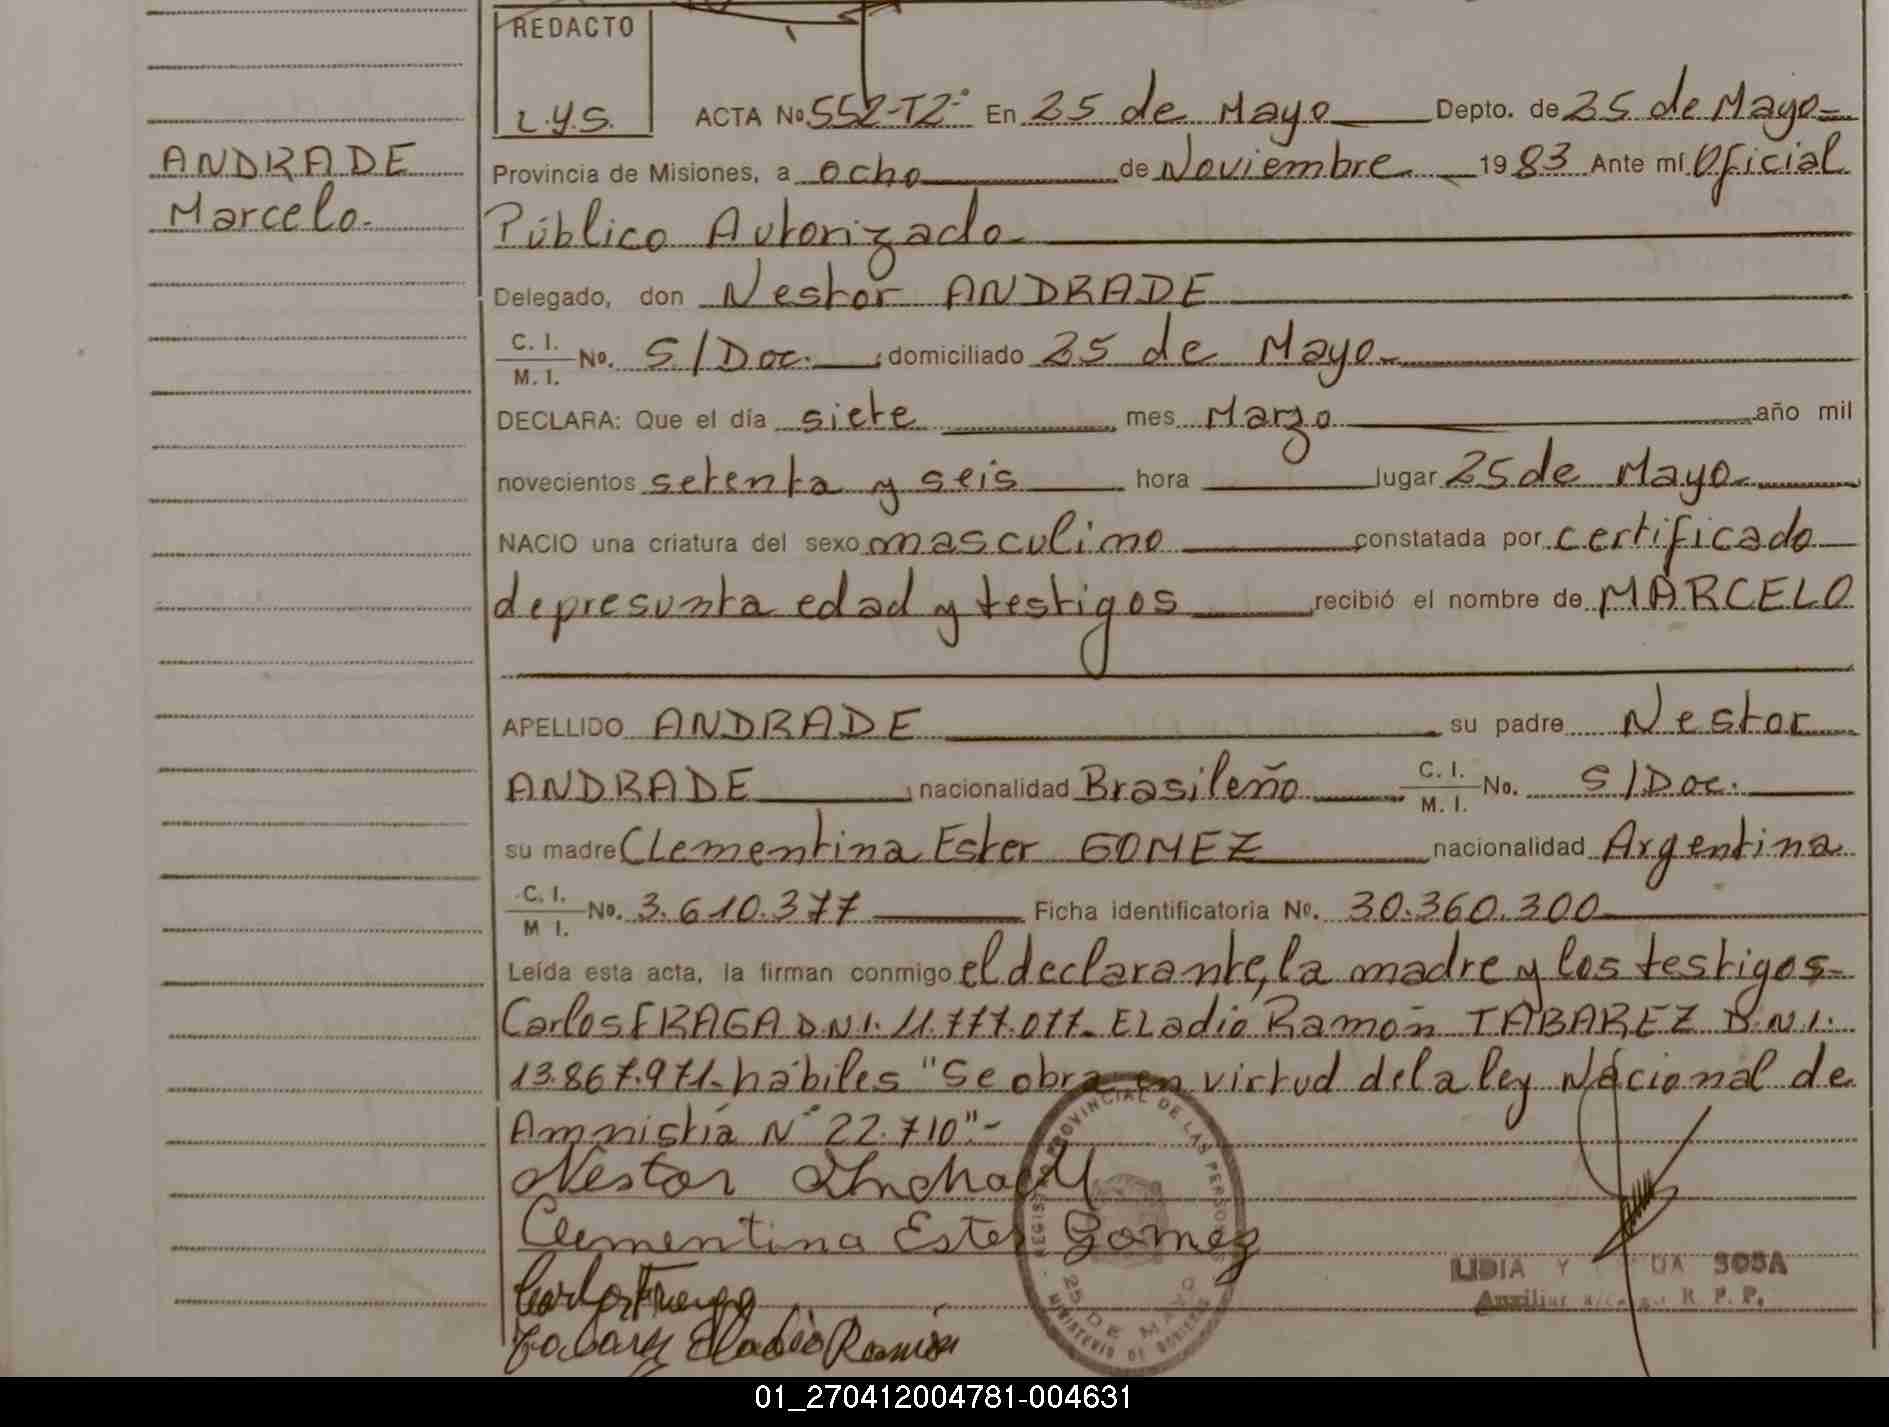 REDACTO
L.Y.S.
ANDRADE
Marcelo.
ACTA No 552-T2° En 25 de Mayo Depto. de 25 de Mayo
Provincia de Misiones, a ocho de Noviembre 1983 Ante mí Oficial
Público Autorizado
Delegado, don Nestor ANDRADE
C. I.
M. I. No. S/Doc. ; domiciliado 25 de Mayo
DECLARA: Que el día siete mes Marzo año mil
novecientos setenta y seis hora lugar 25 de Mayo
NACIO una criatura del sexo masculino constatada por certificado
de presunta edad y testigos recibió el nombre de MARCELO
APELLIDO ANDRADE su padre Nestor
ANDRADE nacionalidad Brasileño C. I.
M. I. No. S/Doc.
su madre Clementina Ester GOMEZ nacionalidad Argentina
C. I.
M I. No. 3.610.377 Ficha identificatoria No. 30.360.300
Leída esta acta, la firman conmigo el declarante, la madre y los testigos
Carlos FRAGA D.N.I. 11.777.077. ELadio Ramón TABAREZ D.N.I.
13.867.971. hábiles "Se obra en virtud de la ley Nacional de
Amnistía N° 22.710".-
Nestor
Clementina Ester Gomez
Eladio Ramón
REGISTRO PROVINCIAL DE LAS PERSONAS
25 DE MAYO
MINISTERIO DE GOBIERNO
LIDIA Y SOSA
Auxiliar R. P. P.
01_270412004781-004631